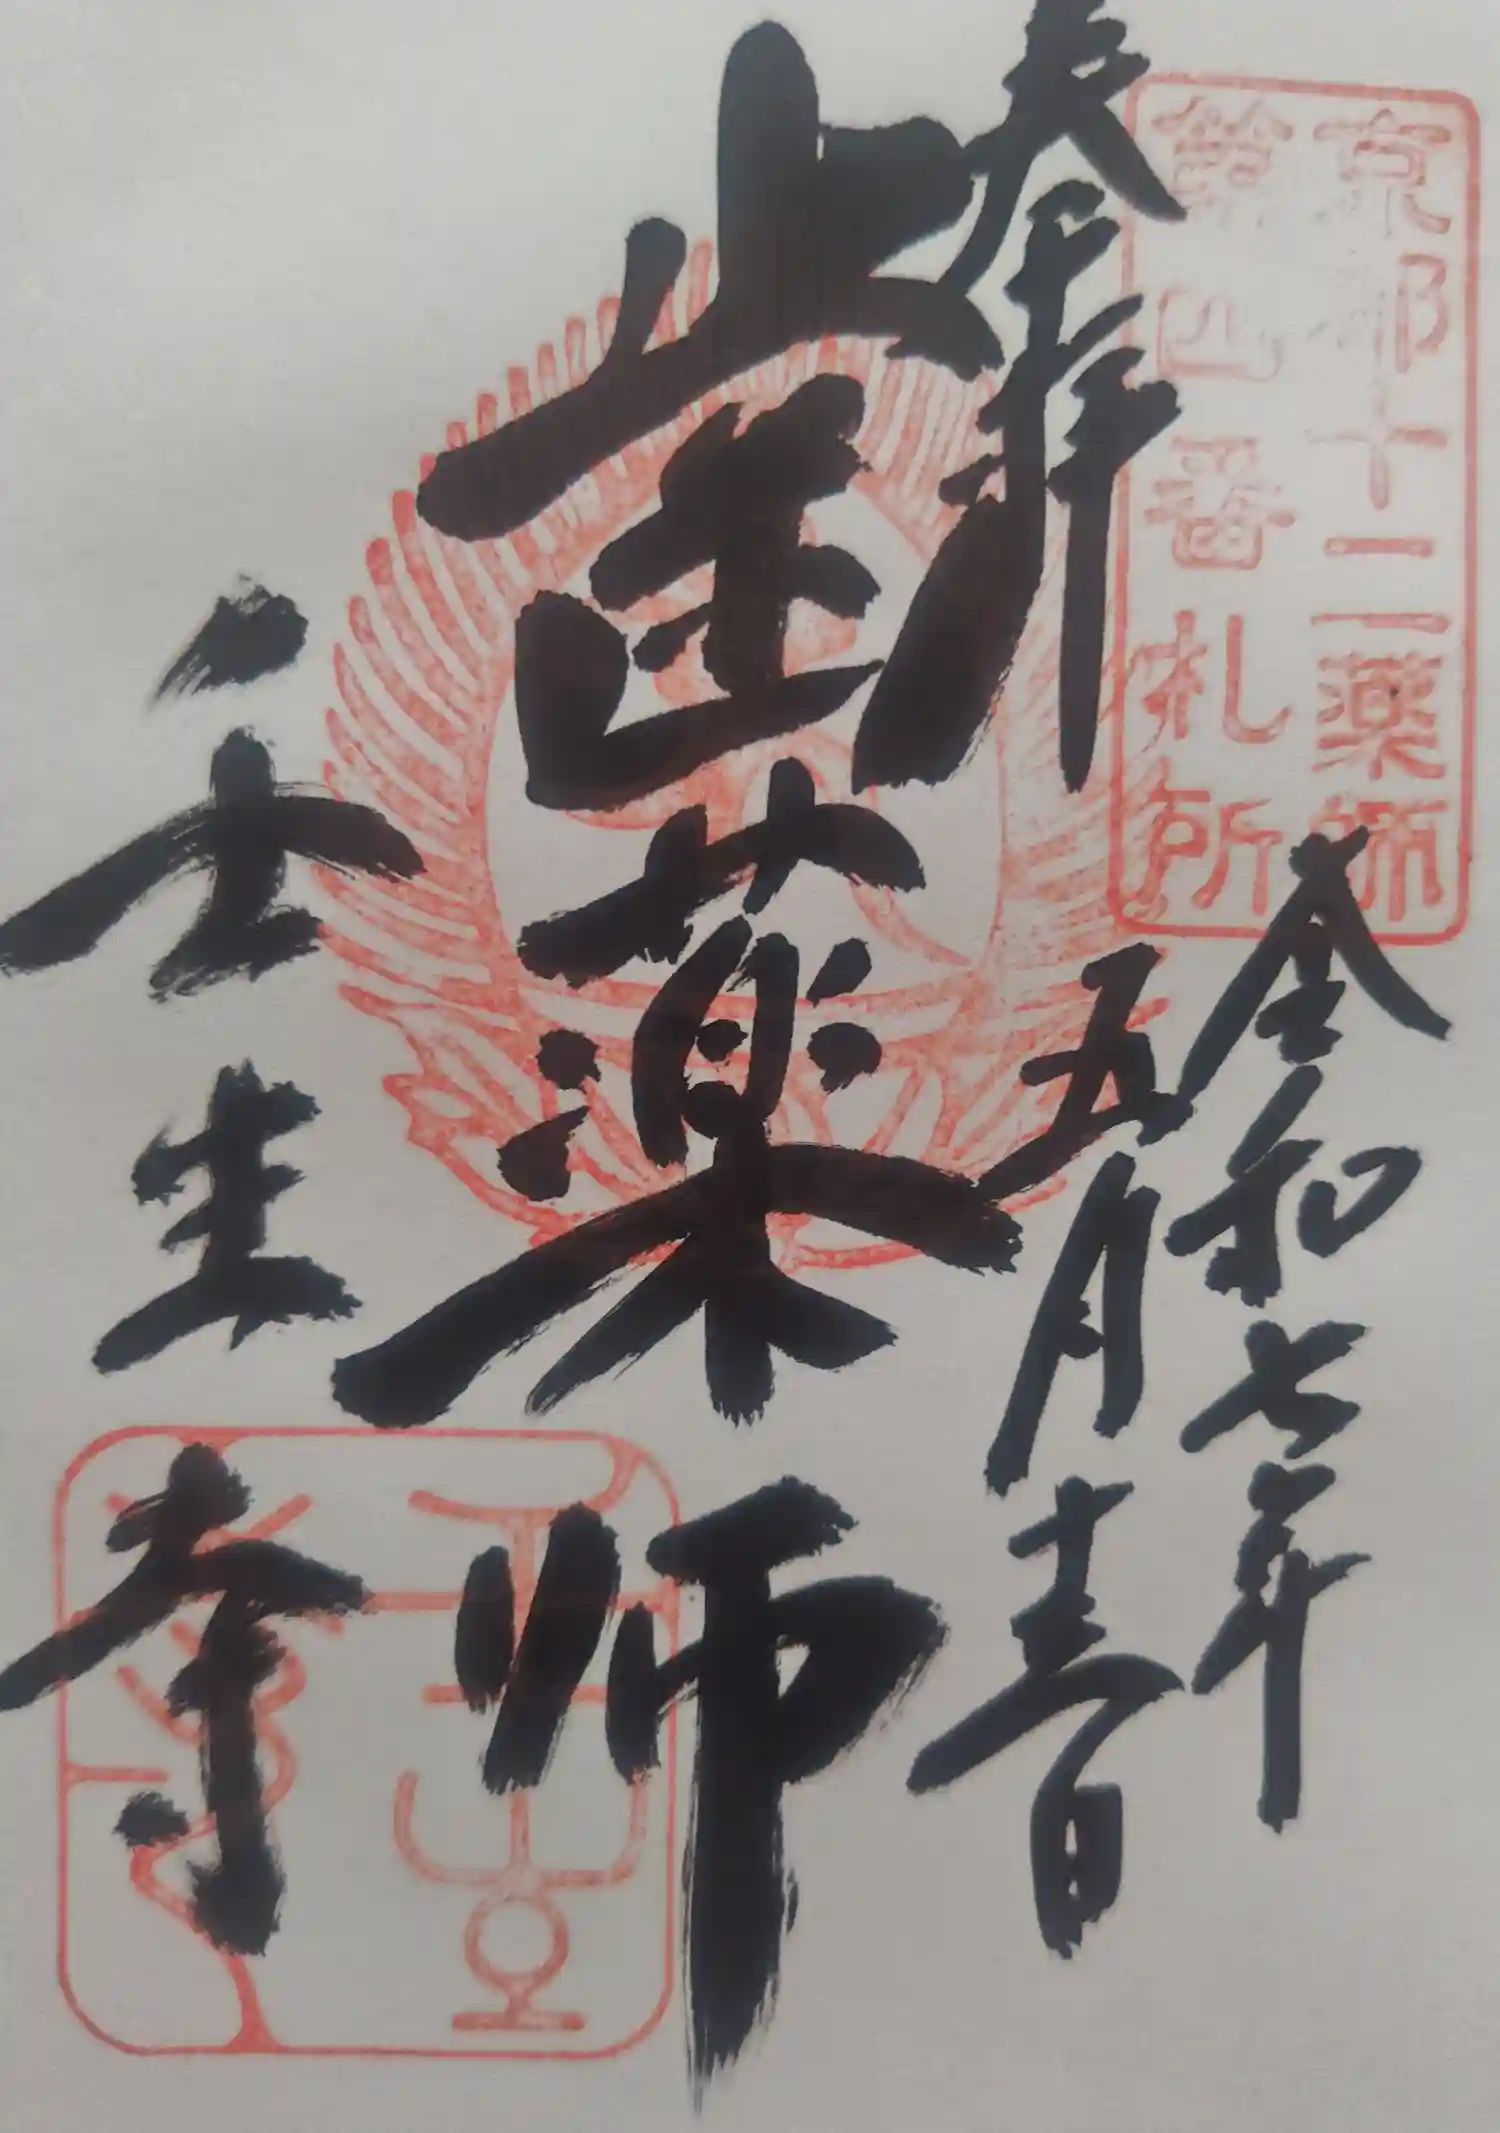 京都十二薬師
第四番札所
奉拝
令和七年
五月十三日
歯薬師
壬生寺